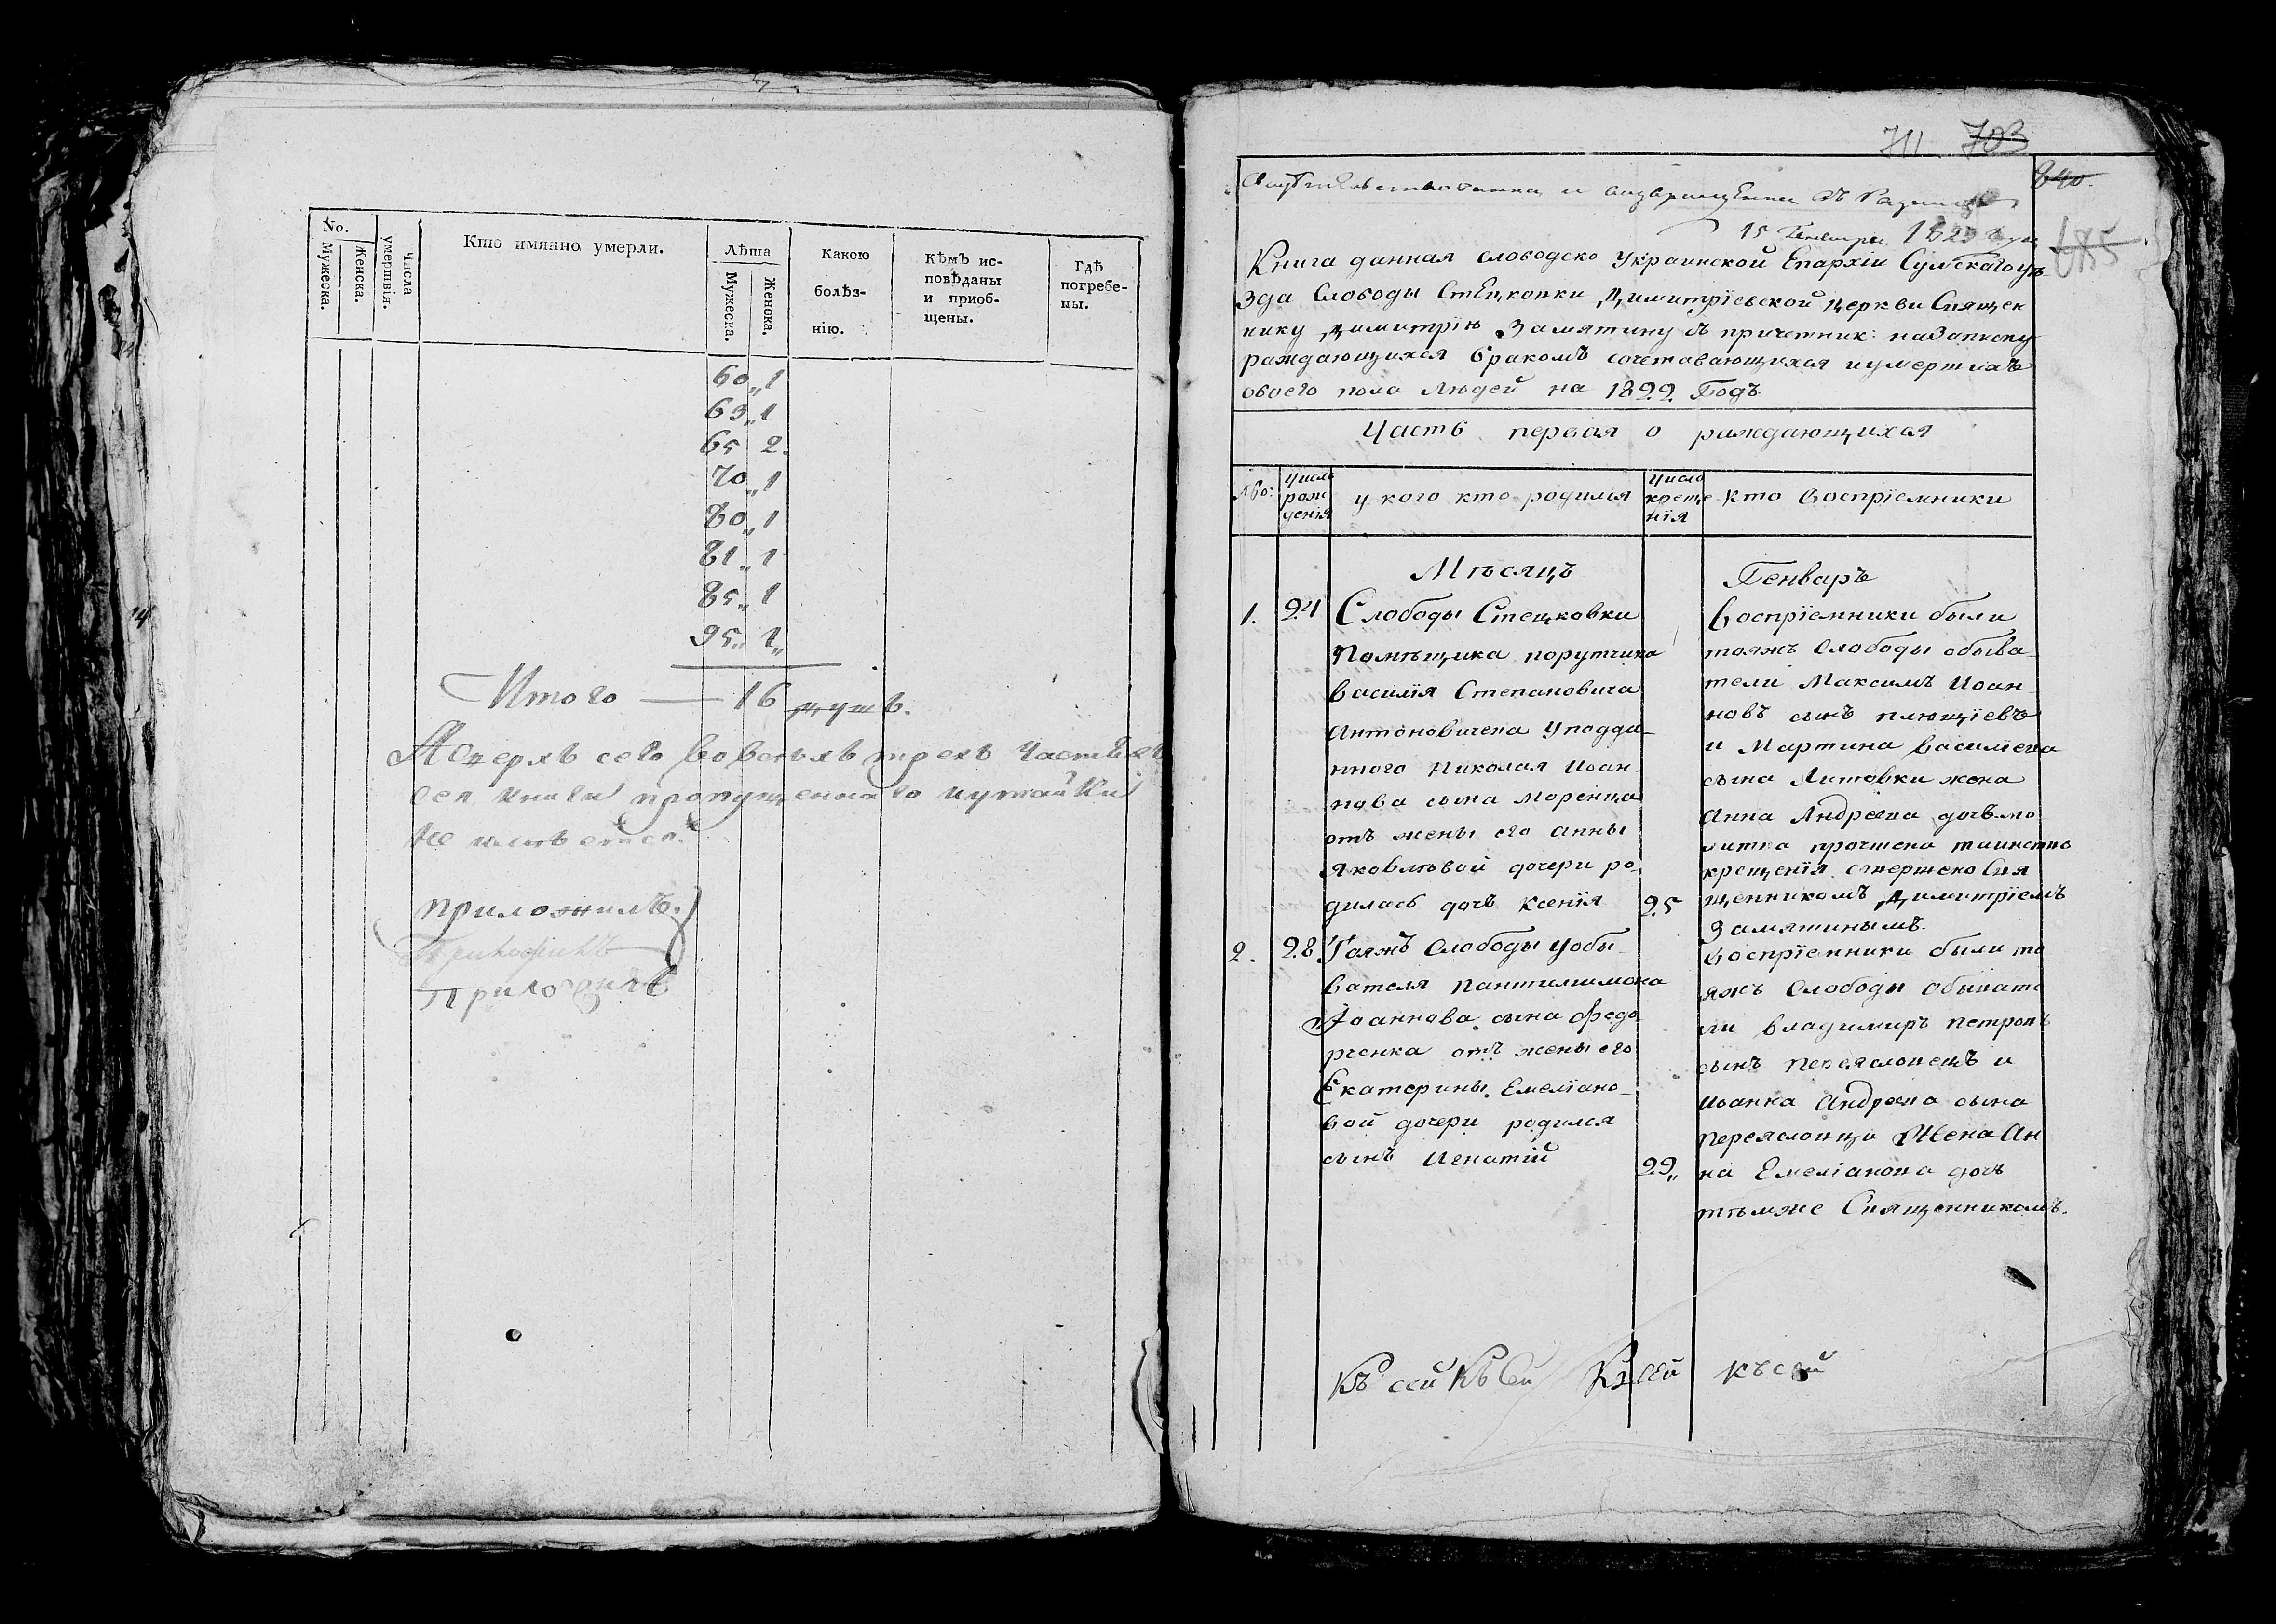 No.
Мужеска.
Женска.
Числа умертвія.
Кто имянно умерли.
Лѣта
Мужеска.
Женска.
Какою
болѣз-
нію.
Кѣмъ ис-
повѣданы
и приоб-
щены.
Гдѣ
погребе-
ны.
60„1
63„1
65 2.
70„1
80„1
81„1
85„1
95„1„
Итого — 16 душъ.
А сверхъ сего во всѣхъ трехъ частяхъ
сея книги пропущеннаго и утайки
не имѣется.
приложилъ.
Приложилъ
711 703
840.
685
15 Генваря 1823 года
Книга данная слободско украинской Епархіи Сумскаго уѣ
зда Слободы Стецковки Димитріевской церкви Священ
нику Димитрію Замятину съ причетник: на записку
раждающихся бракомъ сочетавающихся и умершихъ
обоего пола людей на 1822 Годъ.
Часть первая о раждающихся
число рож денія
у кого кто родился
число креще нія
кто воспріемники
Мѣсяцъ Генваръ
1. 24 Слободы Стецковки
Помѣщика порутчика
Василія Степановича
Антоновичена у подда-
ннаго Николая Иоан
нова сына Моренца
отъ жены его Анны
Яковлевой дочери ро-
дилась дочь Ксенія 25
воспріемники были
тояжъ слободы обыва-
тели Максимъ Иоан-
новъ сынъ
и Мартина василіева
сына Литовки жена
Анна Андреева дочь мо
литва прочтена таинство
крещенія совершено Свя
щенникомъ Димитріемъ
Замятинымъ.
2. 28. Тояжъ Слободы у обы-
вателя Пантилимона
Иоаннова сына Федо
рченка отъ жены его
Екатерины Емеліано-
вой дочери родился
сынъ Игнатій 29„
воспріемники были то
яжъ Слободы обывате
ли владимиръ петровъ
сынъ Переясловецъ и
Иоанна Андреева сына
Переясловца Жена Ан
на Емеліанова дочь
тѣмже Священникомъ.
Къ сей Къ сей Къ сей къ сей